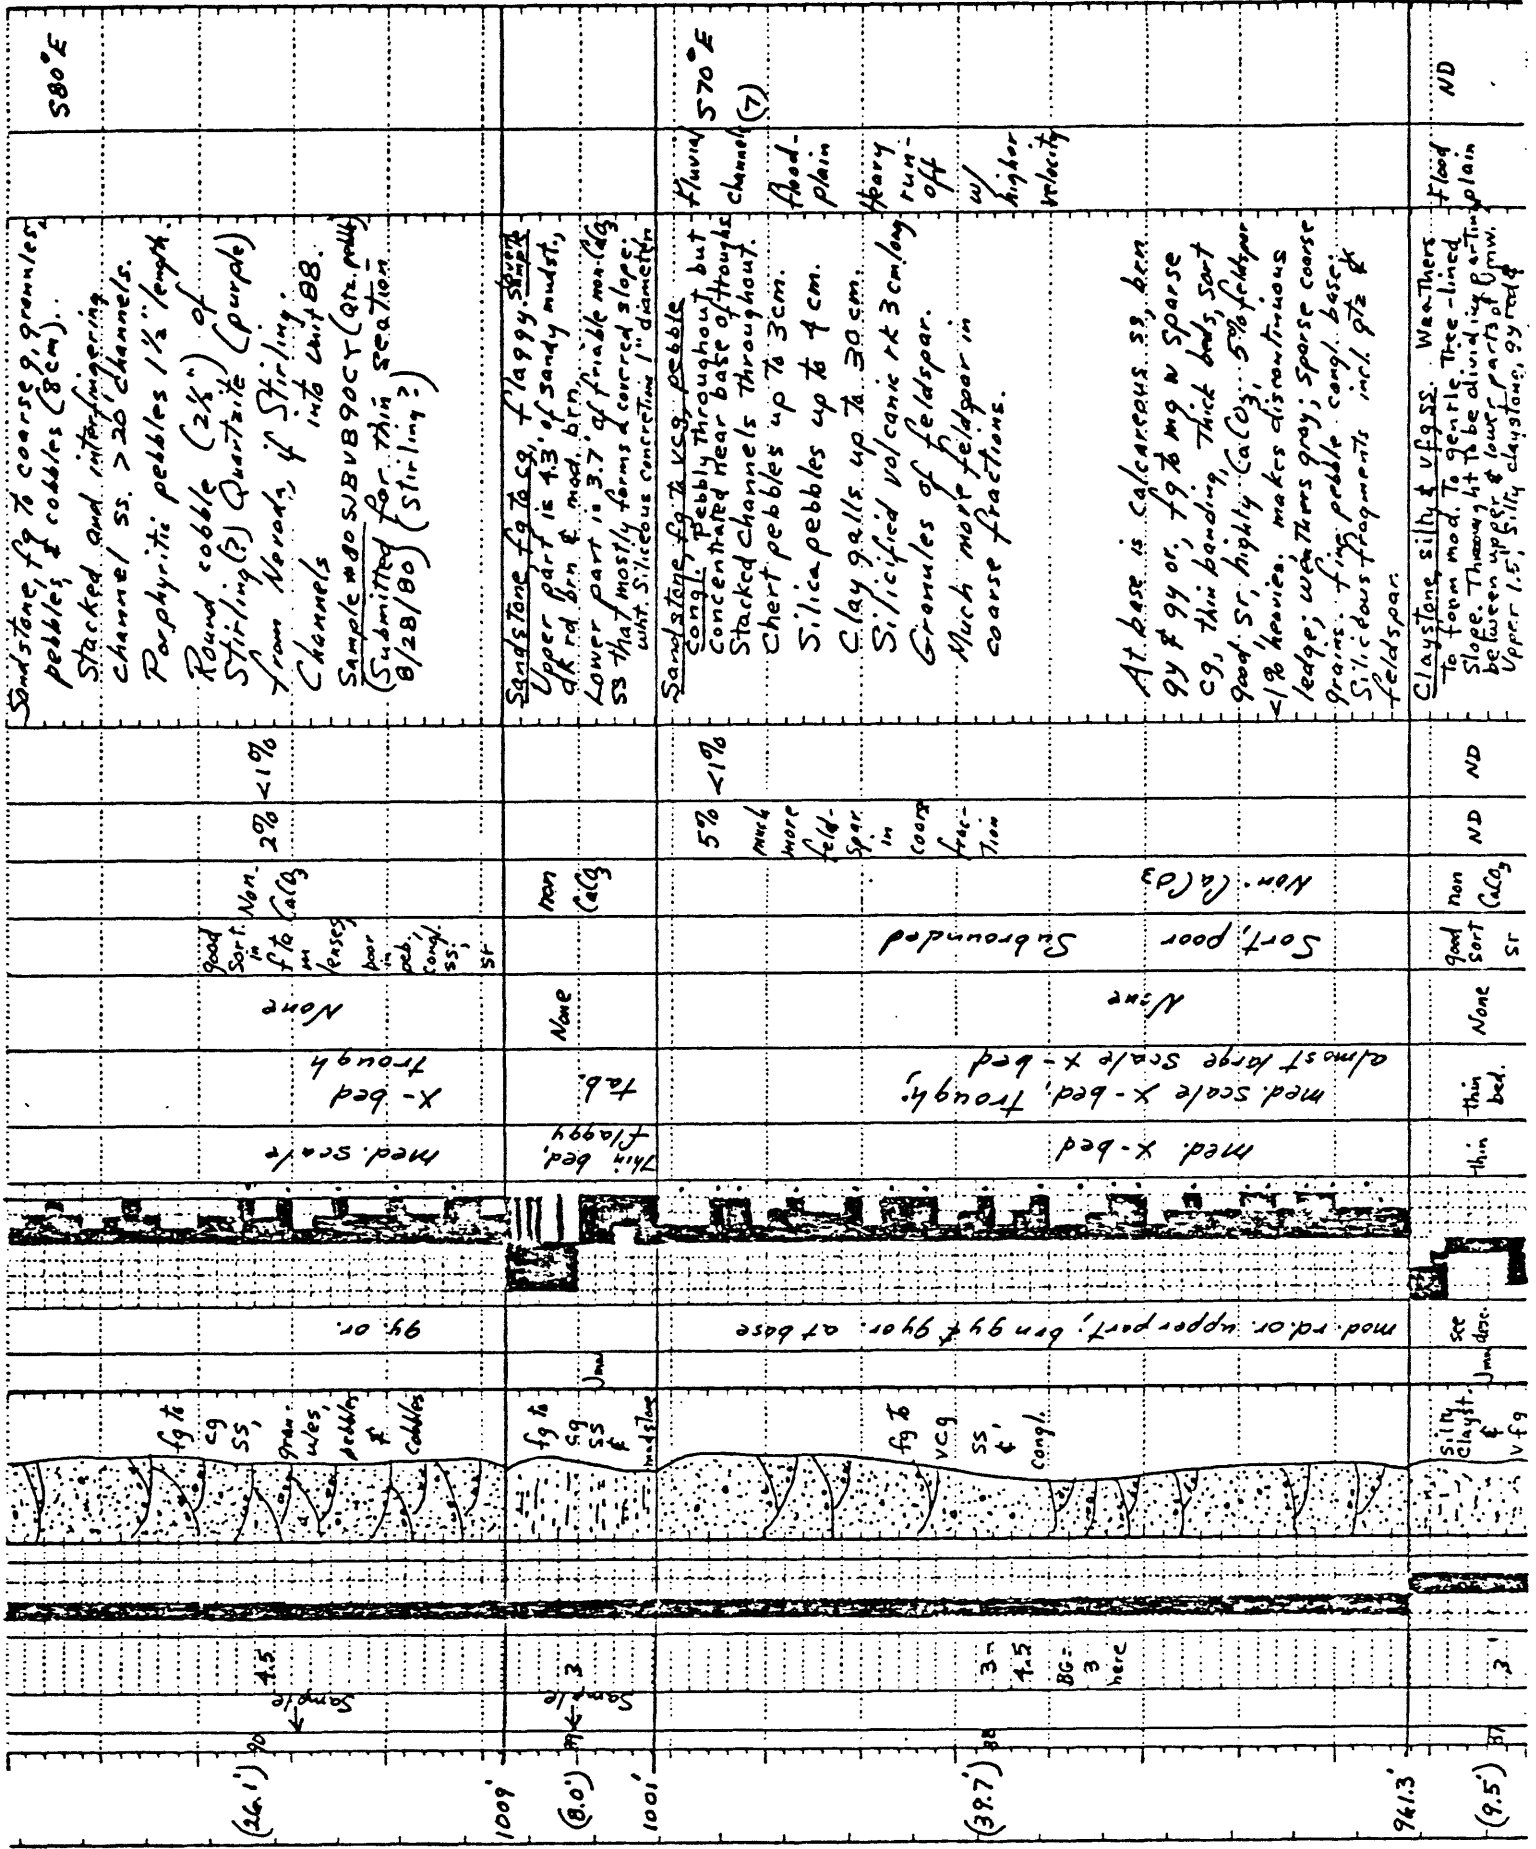 S80°E
Sandstone, fg to coarse g, granules,
pebbles, & cobbles (8cm).
Stacked and interfingering
channel ss. > 20 channels.
Porphyritic pebbles 1½" length.
Round cobble (2½") of
Stirling(?) Quartzite (purple)
from Nevada, if Stirling.
Channels into Unit 88.
Sample #80SJBVB90CY (Qtz. pebb)
(Submitted for thin section
8/28/80) (stirling?)
<1%
2%
Non-
CaCO3
good
sort.
in
f to
m
lenses
poor
in
peb.
congl.
ss,
sr
None
x-bed
trough
med. scale
gy. or.
fg to
cg
ss,
gran-
ules,
pebbles
&
cobbles
4.5
Sample
90
(26.1')
1009'
Sandstone, fg to cg, flaggy.
Upper part is 4.3' of sandy mudst.,
dk rd brn & mod. brn.
Lower part is 3.7' of friable non-CaCO3
ss that mostly forms a covered slope;
wht. Siliceous concretion 1" diameter
non
CaCO3
None
tab.
Thin bed,
flaggy
Jmw
fg to
cg
ss
&
mudstone
3
Sample
89
(8.0')
1001'
S70°E
(7)
Fluvial
channel
flood-
plain
Heavy
run-
off
w/
higher
velocity
Sandstone, fg to vcg, pebble
congl. Pebbly throughout but
concentrated near base of troughs
Stacked channels throughout.
Chert pebbles up to 3cm.
Silica pebbles up to 4 cm.
Clay galls up to 30 cm.
Silicified volcanic rk 3 cm long
Granules of feldspar.
Much more feldspar in
coarse fractions.
At base is calcareous ss, brn
gy & gy or, fg to mg w sparse
cg, thin banding, thick beds, sort
good sr, highly CaCO3; 5% feldspar
<1% heavies. makes discontinuous
ledge; weathers gray; sparse coarse
grains. fine pebble congl. base;
Siliceous fragments incl. qtz &
feldspar.
<1%
5%
much
more
feld-
spar
in
coarse
frac-
tion
Non-CaCO3
Sort, poor Subrounded
None
med. scale x-bed, trough;
almost large scale x-bed
med. x-bed
mod. rd. or. upper part; brn gy & gy or. at base
fg to
vcg
ss
&
congl.
3-
4.5
BG=
3
here
88
(39.7')
961.3'
ND
Flood
plain
Claystone, silty & vfg ss. Weathers
to form mod. to gentle tree-lined
Slope. Thought to be dividing parting
between upper & lower parts of Jmw.
Upper 1.5', silty claystone, gy rd &
ND
ND
non
CaCO3
good
sort
sr
None
thin
bed.
thin
see
desc.
Jmw
silty
Clayst.
&
vfg
3
87
(9.5')